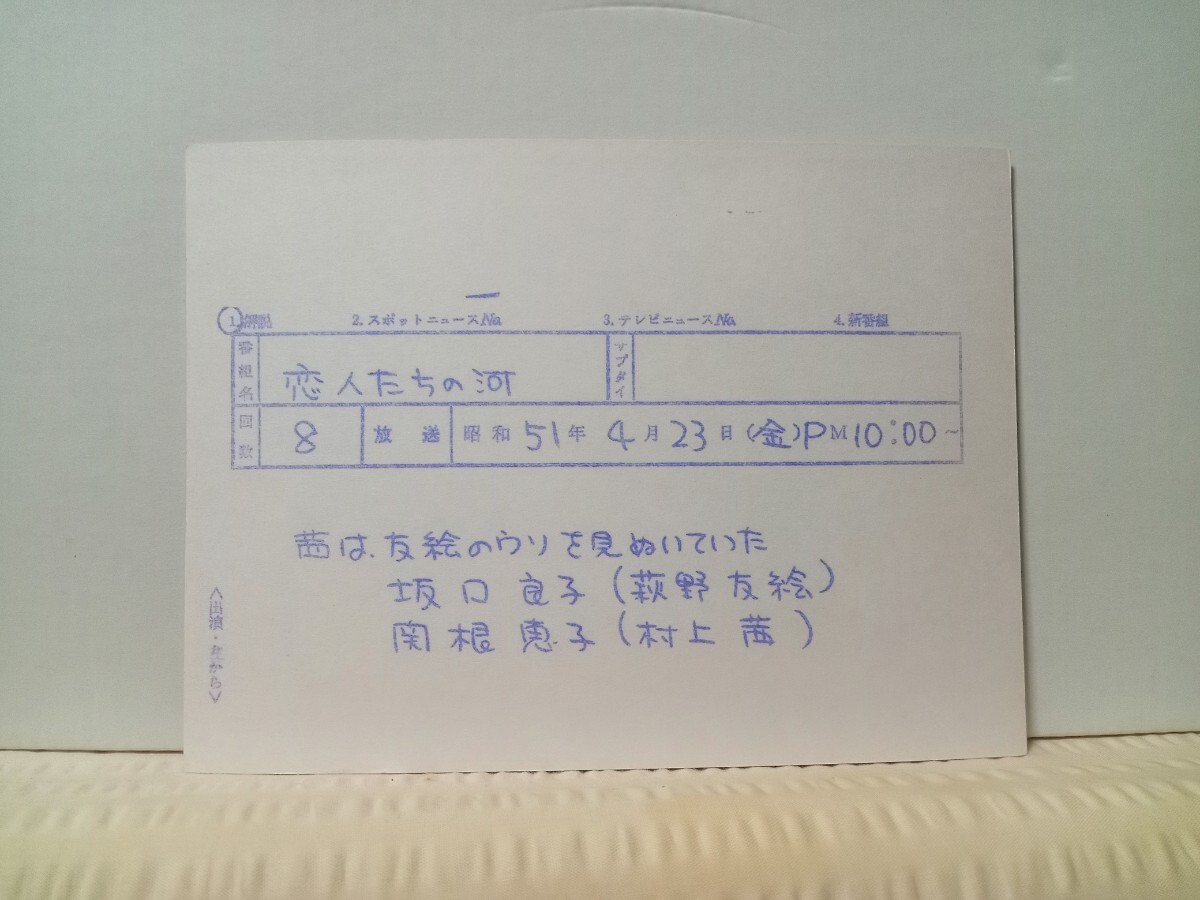 1.解説 2.スポットニュース№ 3.テレビニュース№ 4.新番組
番組名 恋人たちの河 サブタイ
回数 8 放送 昭和51年4月23日(金)PM10:00~
茜は、友絵のウソを見ぬいていた
坂口良子(萩野友絵)
関根恵子(村上茜)